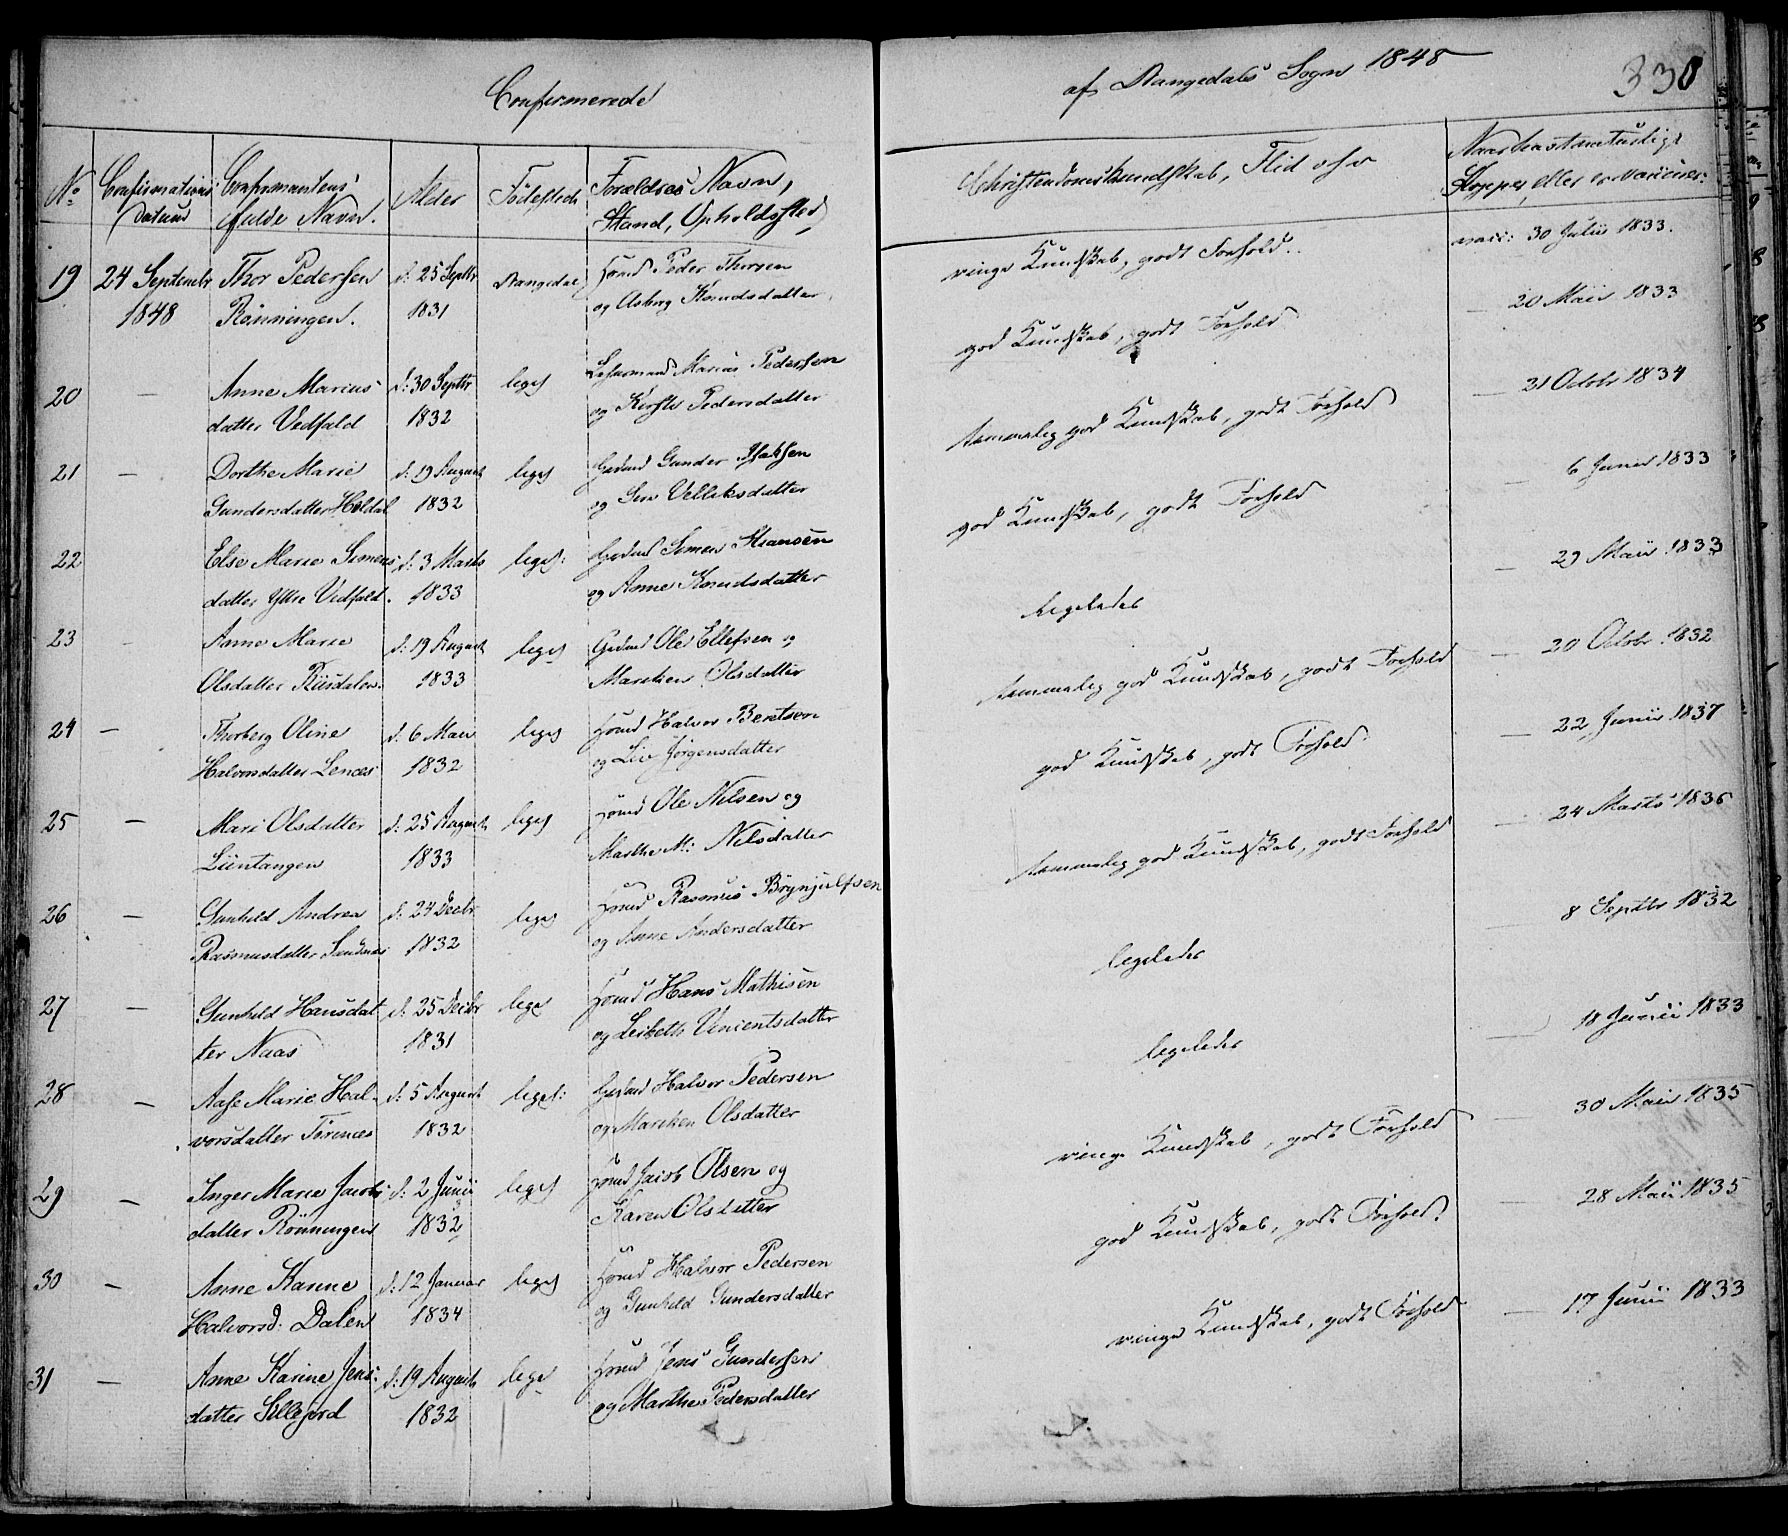 Confirmerede
af Drangedals Sogn 1848
330
No
Confirmations Datum
Confirmantens fulde Navn.
Alder
Födested
Forældres Navn, Stand, Opholdsted,
Christendomskundskab, Flid osv
Naar havt naturlige Kopper, eller er vaccineret
19
24 September 1848
Thor Pedersen Rönningen.
d: 25 Septbr 1831
Drangedal
Hmd Peder Thorsen og Asberg Knudsdatter
ringe Kundskab, godt Forhold.
vacc: 30 Julii 1833.
20
—
Anne Marius datter Vedfald
d: 30 Septbr 1832
liges
Lehnsmand Marius Pedersen og Kirsti Pedersdatter
god Kundskab, godt Forhold
— 20 Maii 1833
21
—
Dorthe Marie Gundersdatter Heldal
d: 19 August 1832
liges
Gaardmd Gunder Isaksen og Siri Velliksdatter
temmelig god Kundskab, godt Forhold
— 21 Octobr 1834
22
Else Marie Simens datter Ytre Vedfald.
d: 3 Marts 1833
liges:
Gaardmd Simen Hansen og Anne Knudsdatter
god Kundskab, godt Forhold
— 6 Junii 1833
23
—
Anne Marie Olsdatter Riisdalen.
d: 19 August 1833
liges
Gaardmd Ole Ellefsen og Mareken Olsdatter
ligeledes
— 29 Maii 1833
24
—
Thorberg Oline Halvorsdatter Lenæs
d: 6 Mai 1832
liges
Hmd Halvor Berntsen og Liv Jörgensdatter
temmelig god Kundskab, godt Forhold
— 20 Octobr 1832
25
—
Mari Olsdatter Lientangen
d: 25 August 1833
liges
Hmd Ole Nilsen og Marthe M: Nilsdatter
god Kundskab, godt Forhold.
— 22 Junii 1837
26
—
Gunhild Andrea Rasmusdatter Sandnæs
d: 24 Decbr 1832
liges
Hmd Rasmus Brynjulfsen og Anne Andersdatter
temmelig god Kundskab, godt Forhold
— 24 Marts 1836
27
—
Gunhild Hansdatter Naas
d: 25 Decbr 1831
liges
Hmd Hans Mathisen og Lisbeth Vincentsdatter
ligeledes
8 Septbr 1832
28
—
Aase Marie Halvorsdatter Förenæs
d: 5 August 1832
liges:
Gaardmd Halvor Pedersen og Mareken Olsdatter
ligeledes
— 18 Junii 1833
29
—
Inger Marie Jacobsdatter Rönningen
d: 2 Junii 1832
liges
Hmd Jacob Olsen og Karen Olsdatter
ringe Kundskab, godt Forhold
— 30 Maii 1835
30
—
Anne Karine Halvorsd: Dalen
d: 12 Januar 1834
liges
Hmd Halvor Pedersen og Gunhild Gundersdatter
god Kundskab, godt Forhold.
— 28 Maii 1835
31
—
Anne Karine Jensdatter Sillejord
d: 19 August 1832
liges
Hmd Jens Gundersen og Marthe Pedersdatter
ringe Kundskab, godt Forhold
— 17 Junii 1833